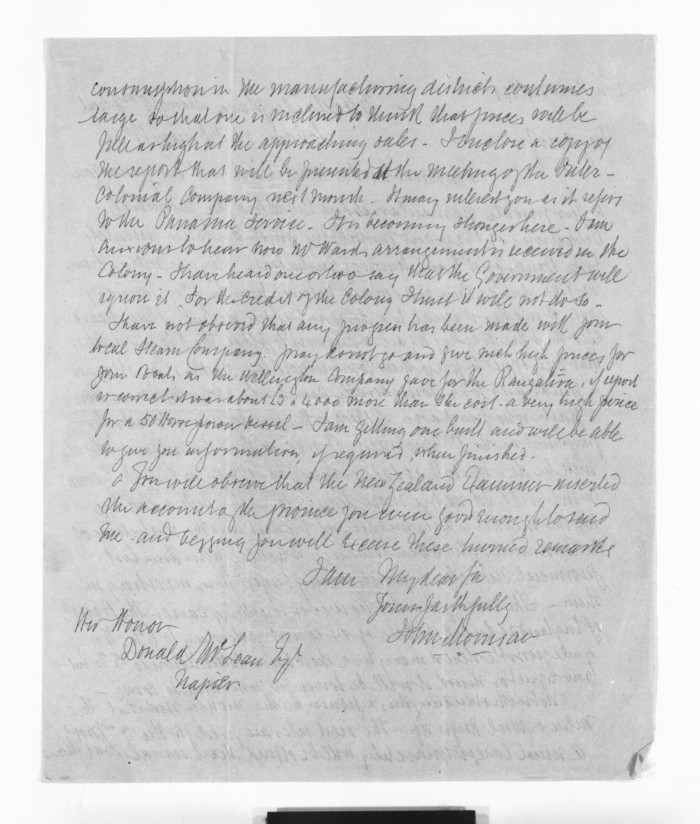 consumption in the manufacturing districts continues
large so that one is inclined to think that prices will be
full as high at the approaching sales - I enclose a copy of
the report that will be presented at the meeting of the Inter-
Colonial Company next month. It may interest you as it refers
to the Panama Service. It is becoming stronger here - I am
anxious to hear how Mr Wards arrangement is received in the
Colony - I have heard one or two say that the Government will
ignore it. For the credit of the Colony I trust it will not do so -
I have not observed that any progress has been made with your
local Steam Company. pray do not go and give such high prices for
your Boats as the Wellington Company gave for the Rangatira, if report
is correct it was about £3 a 4000 more than the cost - a very high price
for a 50 Horse power vessel - I am getting one built and will be able
to give you information, if required, when finished.
You will observe that the New Zealand Examiner inserted
the account of the province you were good enough to send
me - and begging you will excuse these hurried remarks
I am My dear Sir
Yours faithfully
John Morrison
His Honor
Donald McLean Esqr
Napier